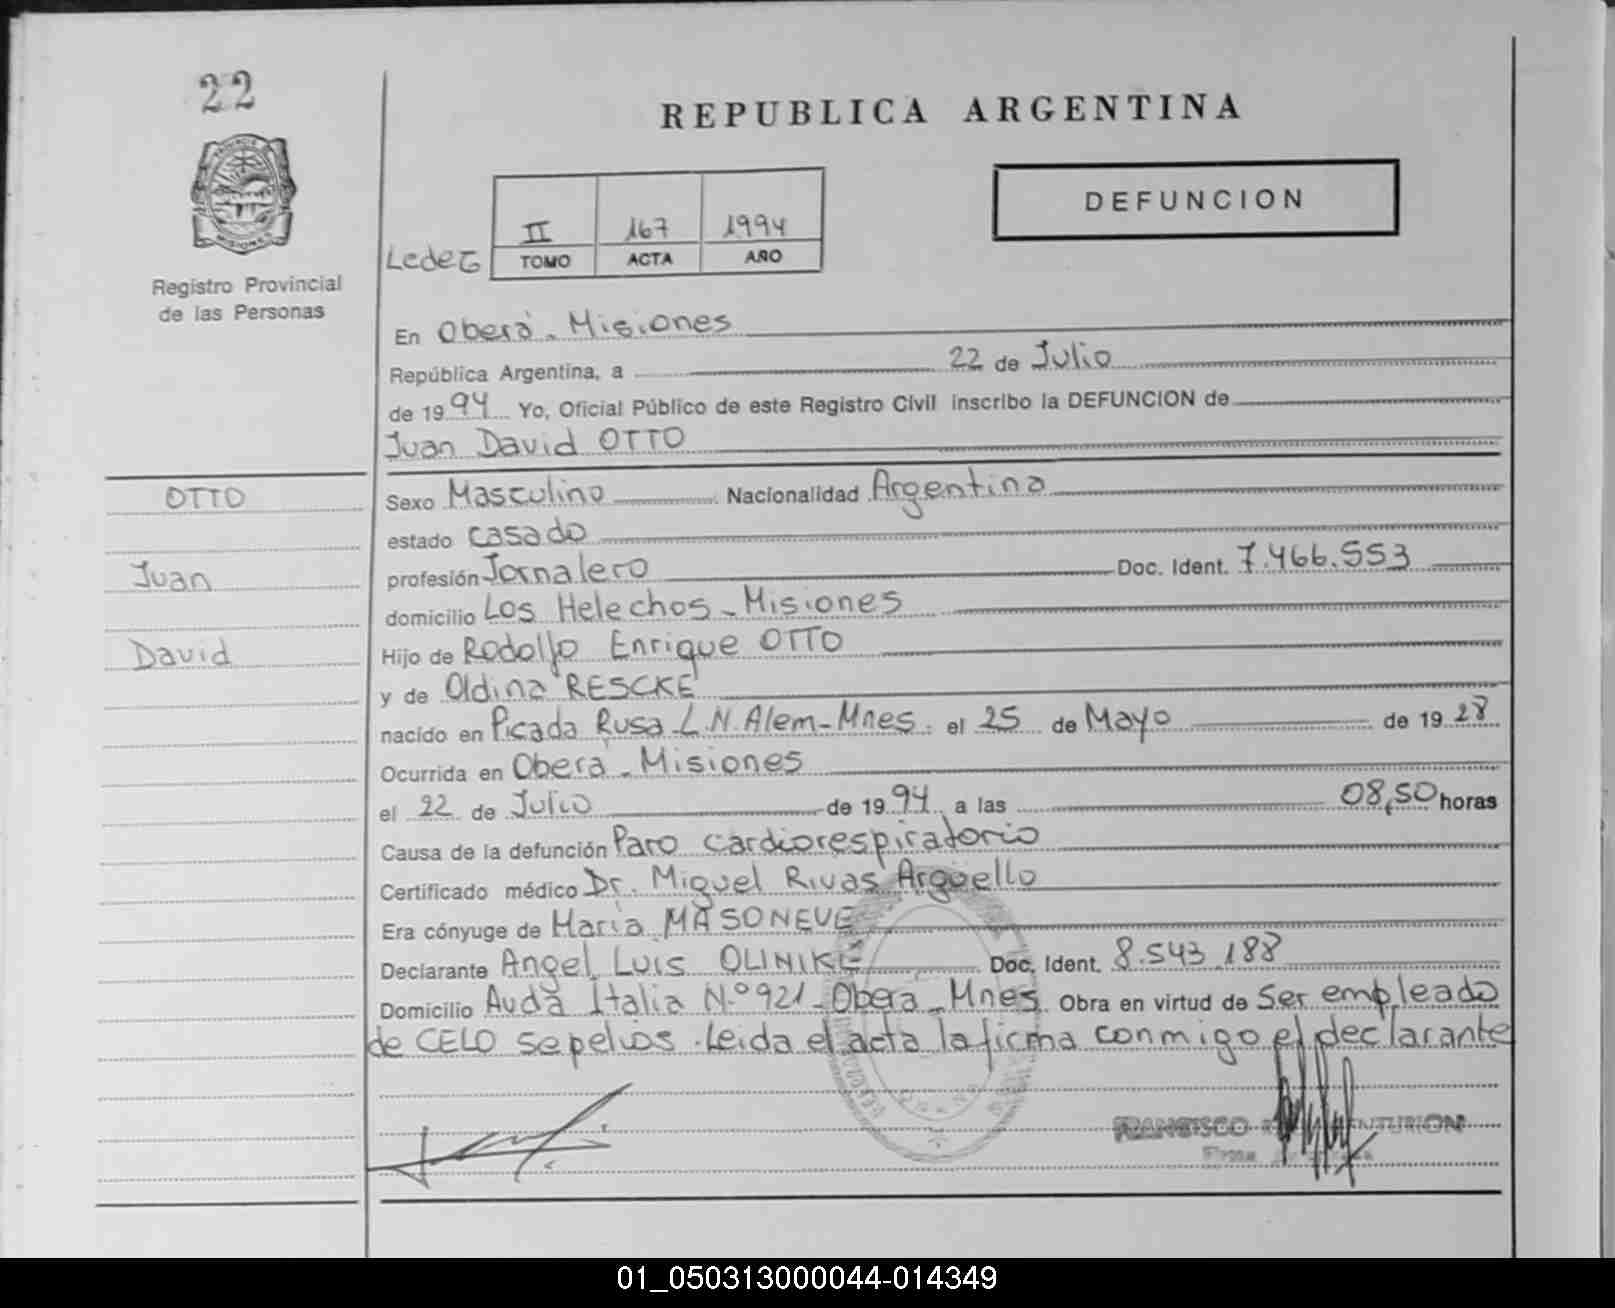 22
REPUBLICA ARGENTINA
DEFUNCION
II 167 1994
TOMO ACTA AÑO
Registro Provincial
de las Personas
En Oberá - Misiones
República Argentina, a 22 de Julio
de 1994 Yo, Oficial Público de este Registro Civil inscribo la DEFUNCION de
Juan David OTTO
OTTO
Juan
David
Sexo Masculino Nacionalidad Argentina
estado casado
profesión Jornalero Doc. Ident. 7.466.553
domicilio Los Helechos - Misiones
Hijo de Rodolfo Enrique OTTO
y de Oldina RESCKE
nacido en Picada Rusa L.N. Alem - Mnes. el 25 de Mayo de 1928
Ocurrida en Oberá - Misiones
el 22 de Julio de 1994 a las 08,50 horas
Causa de la defunción Paro cardiorespiratorio
Certificado médico Dr. Miguel Rivas Argüello
Era cónyuge de María MASONEVE
Declarante Angel Luis OLINIKE Doc. Ident. 8.543.188
Domicilio Avda Italia N.º 921 - Oberá - Mnes. Obra en virtud de Ser empleado
de CELO sepelios. Leida el acta la firma conmigo el declarante
FRANCISCO
01_050313000044-014349